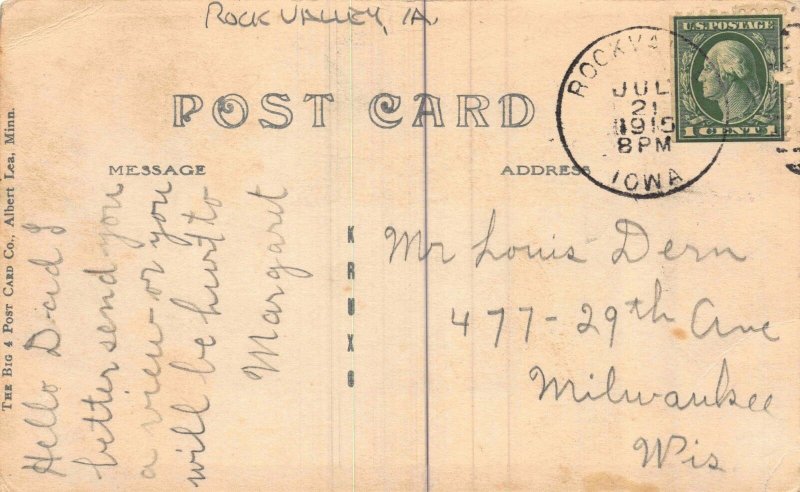 ROCK VALLEY, IA.
POST CARD
ROCKVA
JUL
21
1915
8 PM
IOWA
U.S. POSTAGE
1 CENT 1
MESSAGE
ADDRESS
Hello Dad I
better send you
a view - or you
will be hurt to
Margaret
KRUXO
Mr Louis Dern
477 - 29th Ave
Milwaukee
Wis
THE BIG 4 POST CARD CO., Albert Lea, Minn.